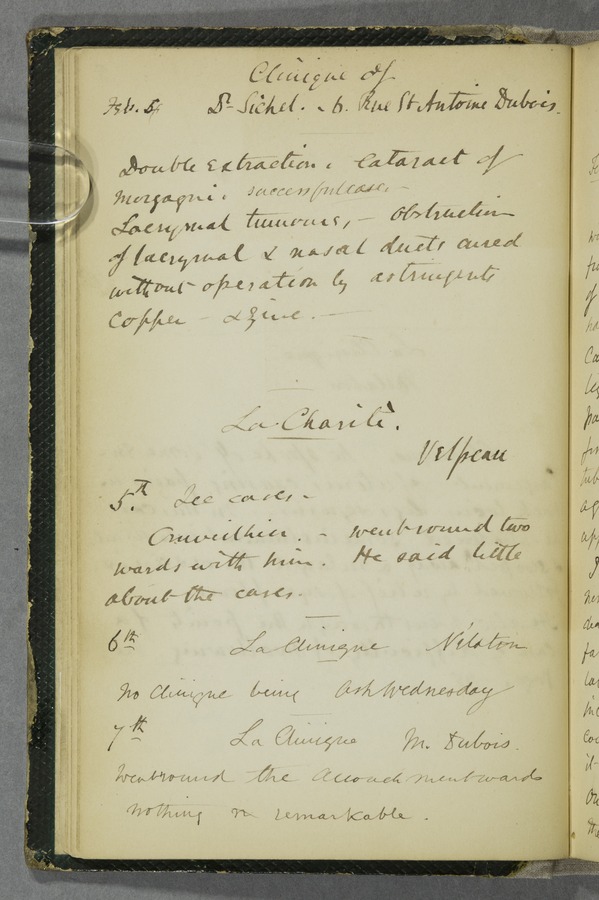 Clinique of
Feb. 5. Dr. Sichel. - 6. Rue St Antoine Dubois.
Double extraction. Cataract of
Morgagni. successful case. -
Lacrymal tumours, - obstruction
of lacrymal & nasal ducts cured
without operation by astringents
Copper - & Zinc. -
La Charité.
Velpeau
5th. See cases -
Cruveilhier. - went round two
wards with him. He said little
about the cases.
6th La Clinique Nélaton
No Clinique being Ash Wednesday
7th La Clinique M. Dubois.
Went round the accouchment wards
nothing remarkable.